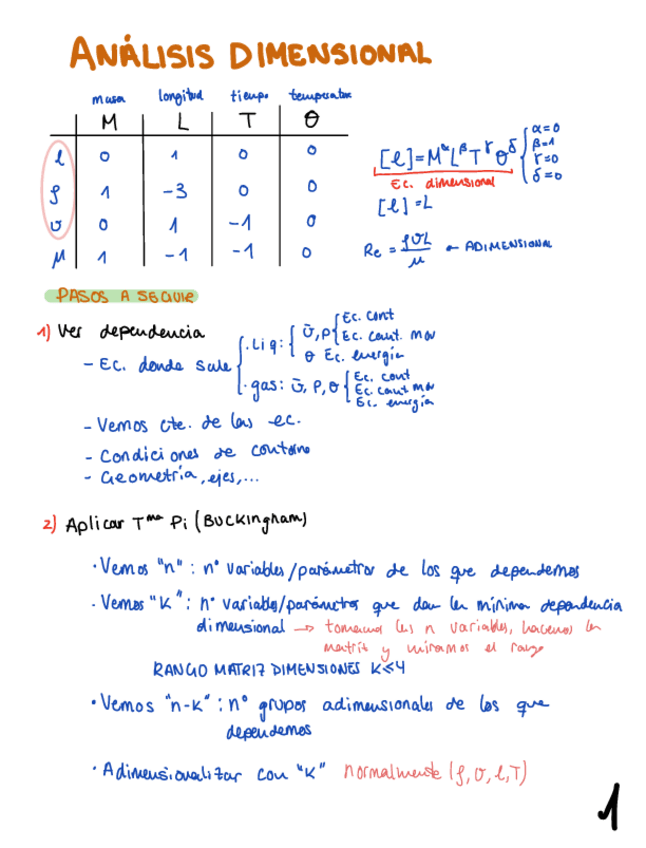 ANÁLISIS DIMENSIONAL
masa longitud tiempo temperatura
M L T θ
l 0 1 0 0
ρ 1 -3 0 0
v 0 1 -1 0
μ 1 -1 -1 0
[l]=M^α L^β T^γ θ^δ { α=0 β=1 γ=0 δ=0
Ec. dimensional
[l]=L
Re = ρvL/μ ← ADIMENSIONAL
PASOS A SEGUIR
1) Ver dependencia
- Ec. donde sale
· Liq: { v̄, P { Ec. cont
Ec. cant. mov
θ Ec. energía
· gas: v̄, P, θ { Ec. cont
Ec. cant mov
Ec. energía
- Vemos cte. de las ec.
- Condiciones de contorno
- Geometría, ejes,...
2) Aplicar Tma Pi (BUCKINGHAM)
· Vemos "n" : nº variables/parámetros de los que dependemos
· Vemos "K" : nº variables/parámetros que dan la mínima dependencia
dimensional → tomamos las n variables, hacemos la
matriz y miramos el rango
RANGO MATRIZ DIMENSIONES K≤4
· Vemos "n-K" : nº grupos adimensionales de los que
dependemos
· Adimensionalizar con "K" normalmente (ρ, v, l, T)
1